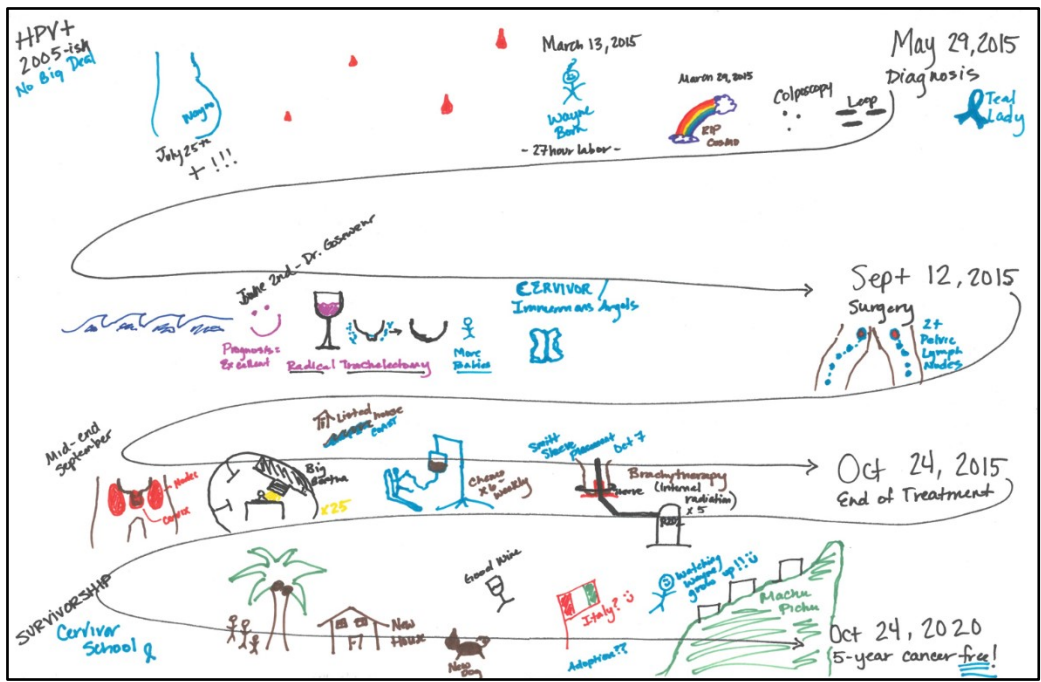 HPV+
2005-ish
No Big Deal
Wayne
July 25th
+ !!!
March 13, 2015
Wayne
Born
- 27 hour labor -
March 29, 2015
RIP
Cosmo
Colposcopy
Leep
May 29, 2015
Diagnosis
Teal
Lady
June 2nd - Dr.
Prognosis =
Excellent
Radical Trachelectomy
More
Babies
CERVIVOR /
Immermans Angels
Sept 12, 2015
Surgery
2+
Pelvic
Lymph
Nodes
Mid-end
September
Nodes
Cervix
Big
Bertha
x25
Listed
house
Chemo
x6
weekly
Smitt
Sleeve
Placement
Oct 7
Brachytherapy
(Internal
radiation)
x 5
Oct 24, 2015
End of Treatment
SURVIVORSHIP
Cervivor
School
F7
New
House
Good Wine
New
Dog
Italy?
Adoption??
Watching
Wayne
grow up!!
Machu
Pichu
Oct 24, 2020
5-year cancer free!